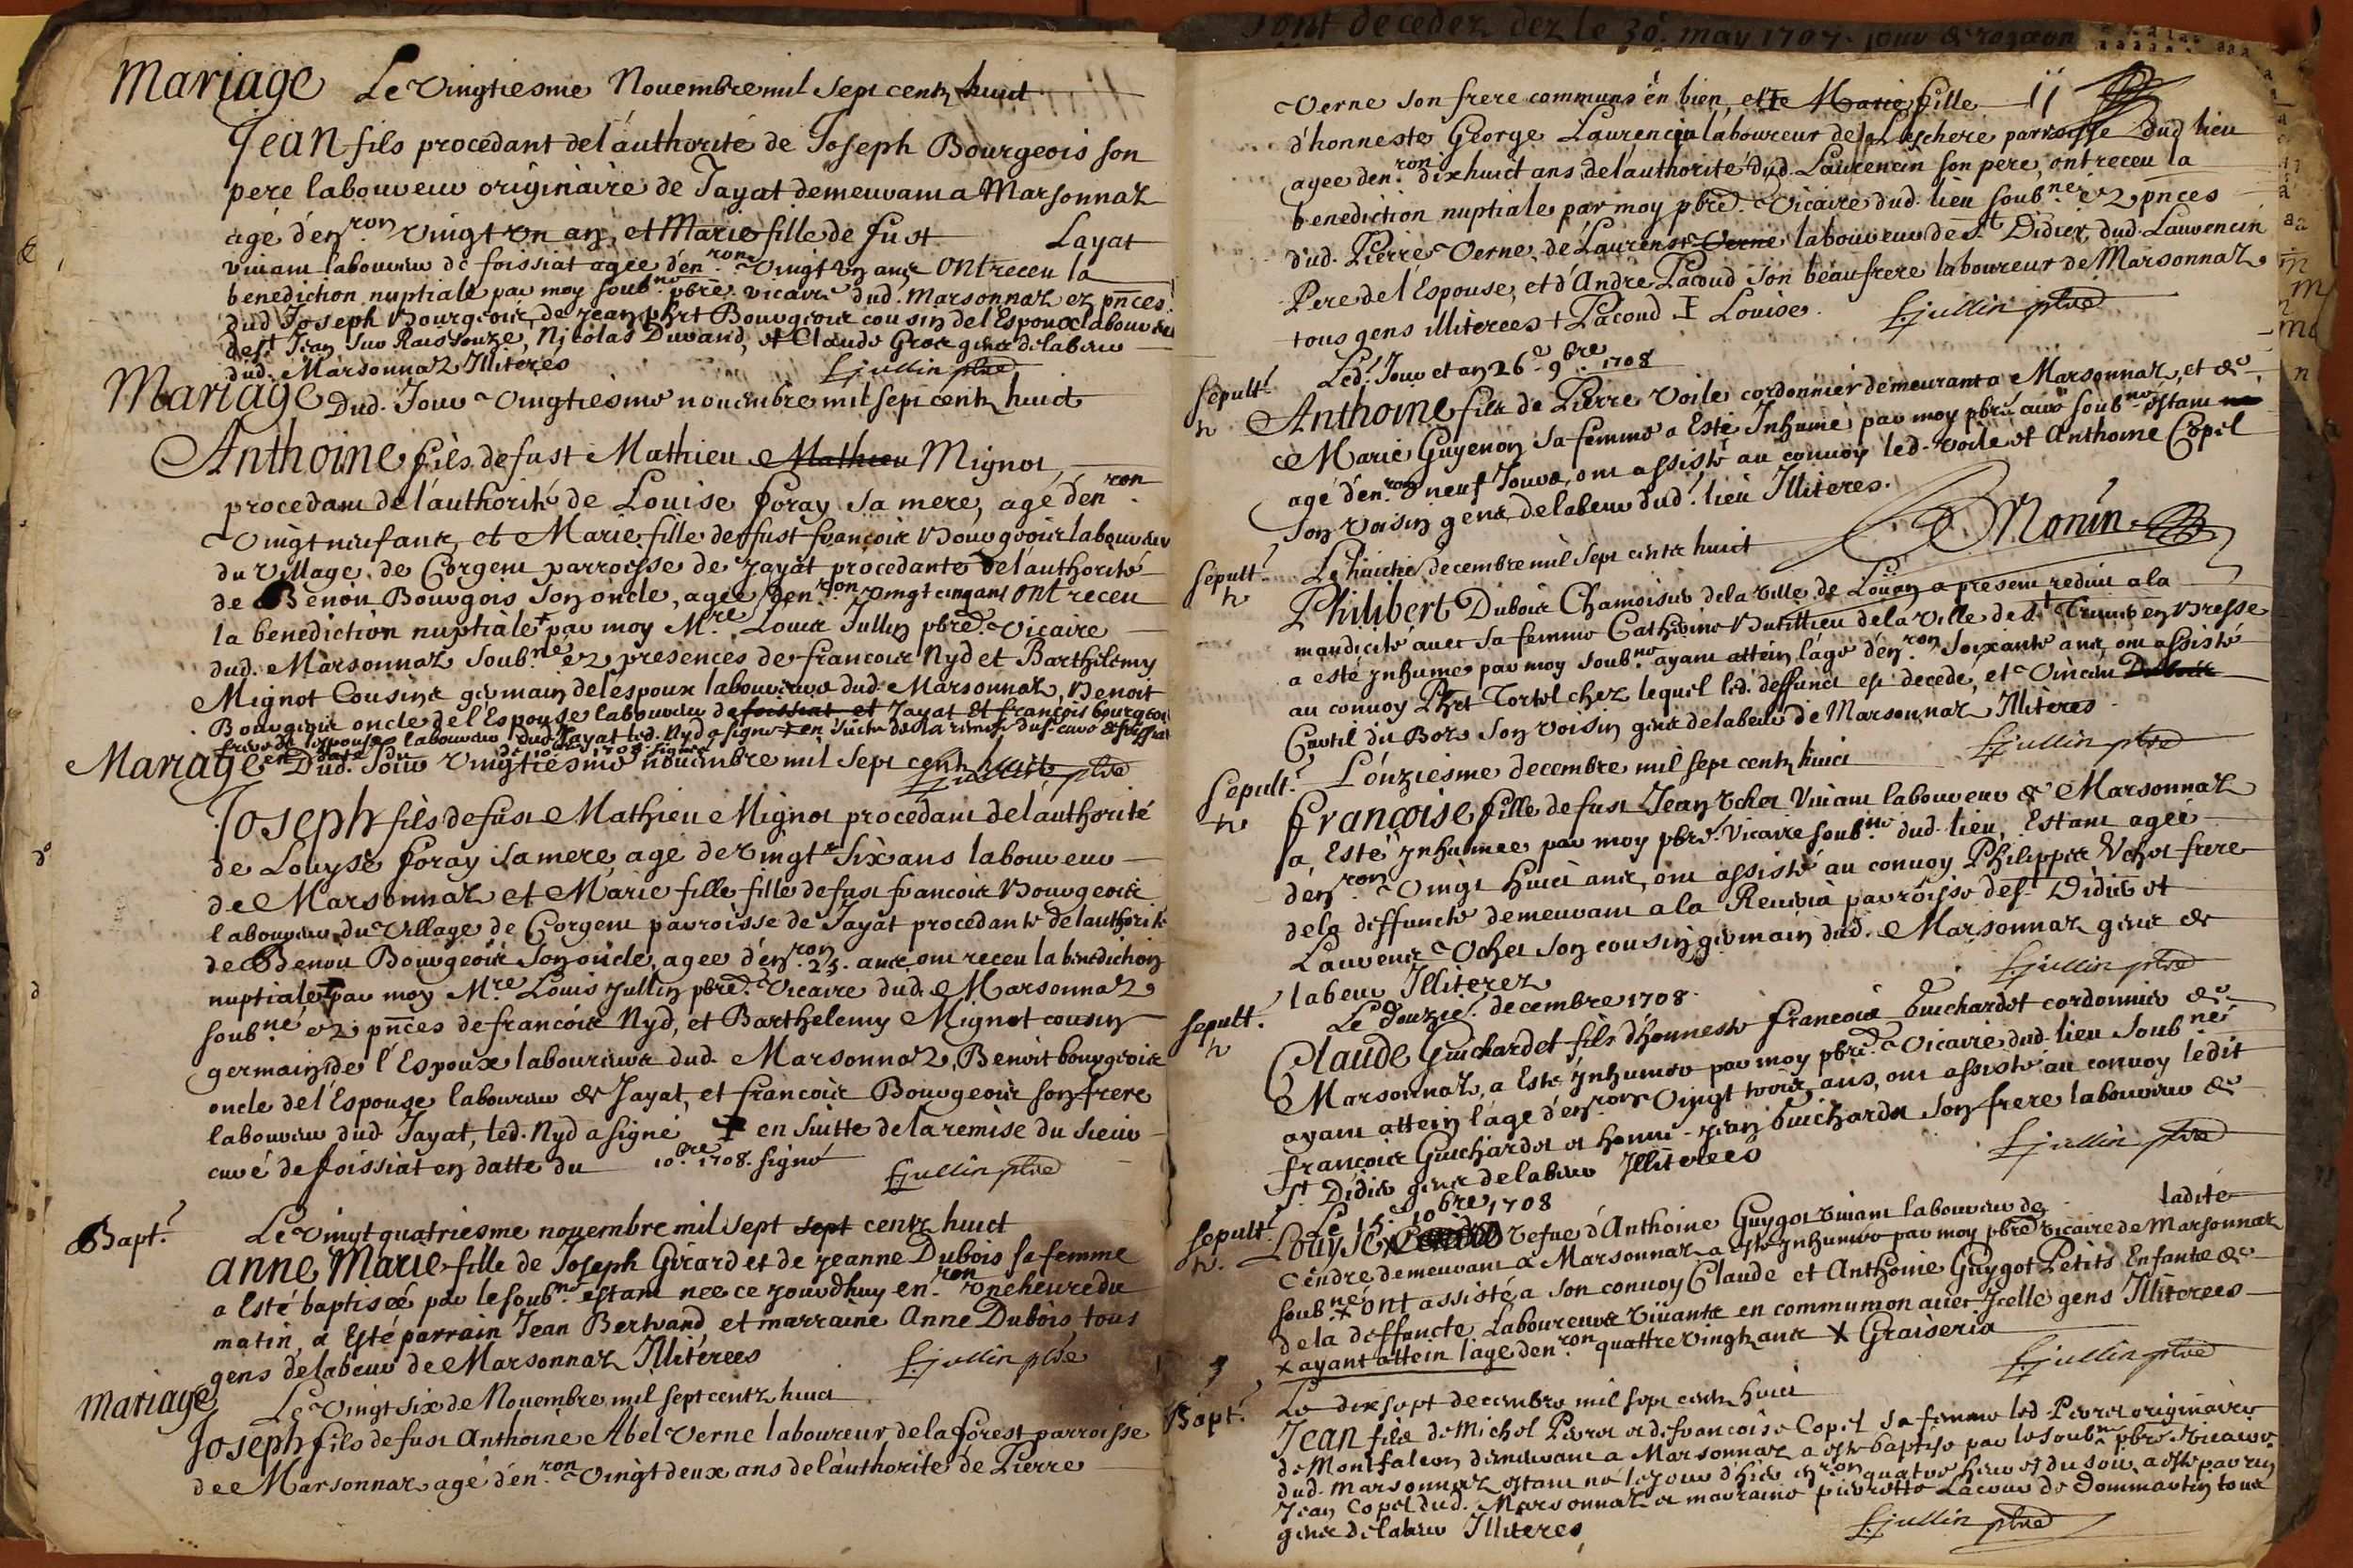 Mariage Le Vingtiesme Nouembre mil sept centz huict
Jean fils procedant de l'authorité de Joseph Bourgeois son
pere laboureur originaire de Jayat demeurant a Marsonnaz
agé d'en.ron vingt vn an, et Marie fille de fust Layat
viuant laboureur de foissiat agée d'en.ron vingt vn ans ont receu la
benediction nuptiale par moy soub.né pbre vicaire dud. Marsonnaz ez pñces
dud Joseph Bourgeois, de Jean phrt Bourgeois cousin de l'Espoux laboureur
de st Jean sur Raissouze, Nicolas Durand, et Claude Gros gens de labeur
dud. Marsonnaz Illiterés L. jullin pbre
Mariage Dud. Jour Vingtiesme nouembre mil sept centz huict
Anthoine fils de fust Mathieu Mathieu Mignot,
procedant de l'authorité de Louise foray sa mere, agé d'en.ron
Vingt neuf ans, et Marie fille de ffust francois Bourgeois laboureur
du village de Corgent parroisse de Jayat procedante de l'authorité
de Benoit Bourgois son oncle, agée d'en.ron vingt cinq ans ont receu
la benediction nuptiale + par moy M.re Louis Jullin pbre. Vicaire
dud. Marsonnaz soub.né ez presences de francois Nyd et Barthelemy
Mignot Cousins germain de l'espoux laboureurs dud. Marsonnaz, Benoit
Bourgeois oncle de l'Espouse laboureur de foissiat et Jayat et françois bourgeois
frere de l'espouse laboureur dud. Jayat led. Nyd a signé + en suitte de la remise du s. curé de foissiat
en date du de 10bre 1708 signé
Mariage Dud. Jour Vingtiesme nouembre mil sept centz huict L. jullin pbre
Joseph fils de fust Mathieu Mignot procedant de l'authorité
de Louyse foray sa mere, agé de vingt Six ans laboureur
de Marsonnaz et Marie fille fille de fust francois Bourgeois
laboureur du Village de Corgent parroisse de Jayat procedante de l'authorité
de Benoit Bourgeois son oncle, agee d'en.ron 25. ans, ont receu la benediction
nuptiale + par moy M.re Louis Jullin pbre. Vicaire dud. Marsonnaz
soub.né ez pñces de francois Nyd, et Barthelemy Mignot cousin
germains de l'Espoux laboureurs dud. Marsonnaz, Benoit bourgeois
oncle de l'Espouse laboureur de Jayat, et francois Bourgeois son frere
laboureur dud. Jayat, led. Nyd a signé + en suitte de la remise du sieur
curé de foissiat en datte du 10.bre 1708. signé L. jullin pbre
Bapt.e Le Vingt quatriesme nouembre mil sept sept centz huict
Anne Marie fille de Joseph Girard et de Jeanne Dubois sa femme
a Esté baptiséé par le soub.né estant nee ce jourdhuy en.ron vne heure du
matin, a Esté parrain Jean Bertrand et marraine Anne Dubois, tous
gens de labeur de Marsonnaz Illiterees L. jullin pbre
Mariage Le Vingt six de Nouembre mil sept centz huict
Joseph fils de fust Anthoine Abel Verne laboureur de la forest parroisse
de Marsonnaz agé d'en.ron Vingt deux ans de l'authorité de Pierre
sont decedez dez le 30e may 1707
Verne son frere communs en bien, et Marie fille 11
d'honneste George Laurencin laboureur de la Leschere parroisse dud lieu
agee d'en.ron dix huict ans de l'authorité dud. Laurencin son pere, ont receu la
benediction nuptiale par moy pbre. Vicaire dud. lieu soub.né ez pnces
dud. Pierre Verne, de Laurenst Verne laboureur de St Didier dud. Laurencin
Pere de l'Espouse, et d'André Pacoud son beau frere laboureur de Marsonnaz
tous gens illiterees + Pacoud Louise. L. jullin pbre
Sepult.e Led. Jour et an 26e 9bre 1708
Anthoine fils de Pierre Voile cordonnier demeurant a Marsonnaz, et de
Marie Guyenon sa femme a Esté Inhumé par moy pbre curé soub.né estant
agé d'en.ron neuf Jours, ont assisté au conuoy led. Voile et Anthoine Copel
son voisin gens de labeur dud. lieu Illiteres. Monin
Sepult.e Le huictie decembre mil sept centz huict
Philibert Dubois Chamoiseur de la ville de Loüan a present reduit a la
mandicité auec sa femme Catherine de la Ville de st Triuier en Bresse
a esté Inhumé par moy soub.né ayant attein l'âge d'en.ron soixante ans, ont assisté
au conuoy Phrt Tortel chez lequel led. deffunct est decedé, et Vincent Dubois
du Bois son voisin gens de labeur de Marsonnaz Illiteres
L. jullin pbre
Sepult.e L'onziesme decembre mil sept centz huict
Françoise fille de fust Jean Vcher Viuant laboureur de Marsonnaz
a Esté Inhumee par moy pbre. Vicaire soub.né dud. lieu, Estant ageé
d'en.ron Vingt huict ans, ont assisté au conuoy Philippe Vcher frere
de la deffuncte demeurant a la parroisse de st Didier et
Laurent Vcher son cousin germain dud. Marsonnaz gens de
labeur Illiterez L. jullin pbre
sepult.e Le douzie. decembre 1708.
Claude Guichardet fils d'honneste francois Guichardet cordonnier de
Marsonnaz, a Esté Inhumé par moy pbre. Vicaire dud. lieu soub.né
ayant attein l'age d'en.ron Vingt trois ans, ont assisté au conuoy ledit
françois Guichardet et honn. Jean Guichardet son frere laboureur de
st Didier gens de labeur Illiterees L. jullin pbre
sepult.e Le 15e 10bre 1708
Louyse vefue d'Anthoine Guygot viuant laboureur de ladite
Cendre demeurant a Marsonnaz a esté Inhumée par moy pbre vicaire de Marsonnaz
soub.né x ont assisté a son conuoy Claude et Anthoine Guygot Petits Enfants de
de la deffuncte Laboureurs Viuants en communion auec Icelle gens Illiterees
x ayant attein l'age d'en.ron quattre vingtz ans x Graiseria L. jullin pbre
Bapt.e Le dix sept decembre mil sept centz huict
Jean fils de Michel Perret et de francoise Copel sa femme led. Perret originaire
de Montfalcon demeurant a Marsonnaz a esté baptisé par le soub.né pbre Vicaire
dud. Marsonnaz estant né le jour d'hier en.ron quatre heures du soir, a esté parrin
Jean Copel dud. Marsonnaz et marraine pierrette Lacour de Dommartin tous
gens de labeur Illiteres L. jullin pbre